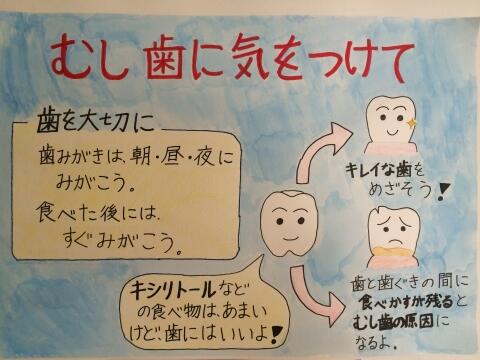 むし歯に気をつけて
歯を大切に
歯みがきは、朝・昼・夜に
みがこう。
食べた後には、
すぐみがこう。
キシリトールなど
の食べ物は、あまい
けど、歯にはいいよ!
キレイな歯を
めざそう!
歯と歯ぐきの間に
食べかすが残ると
むし歯の原因に
なるよ。